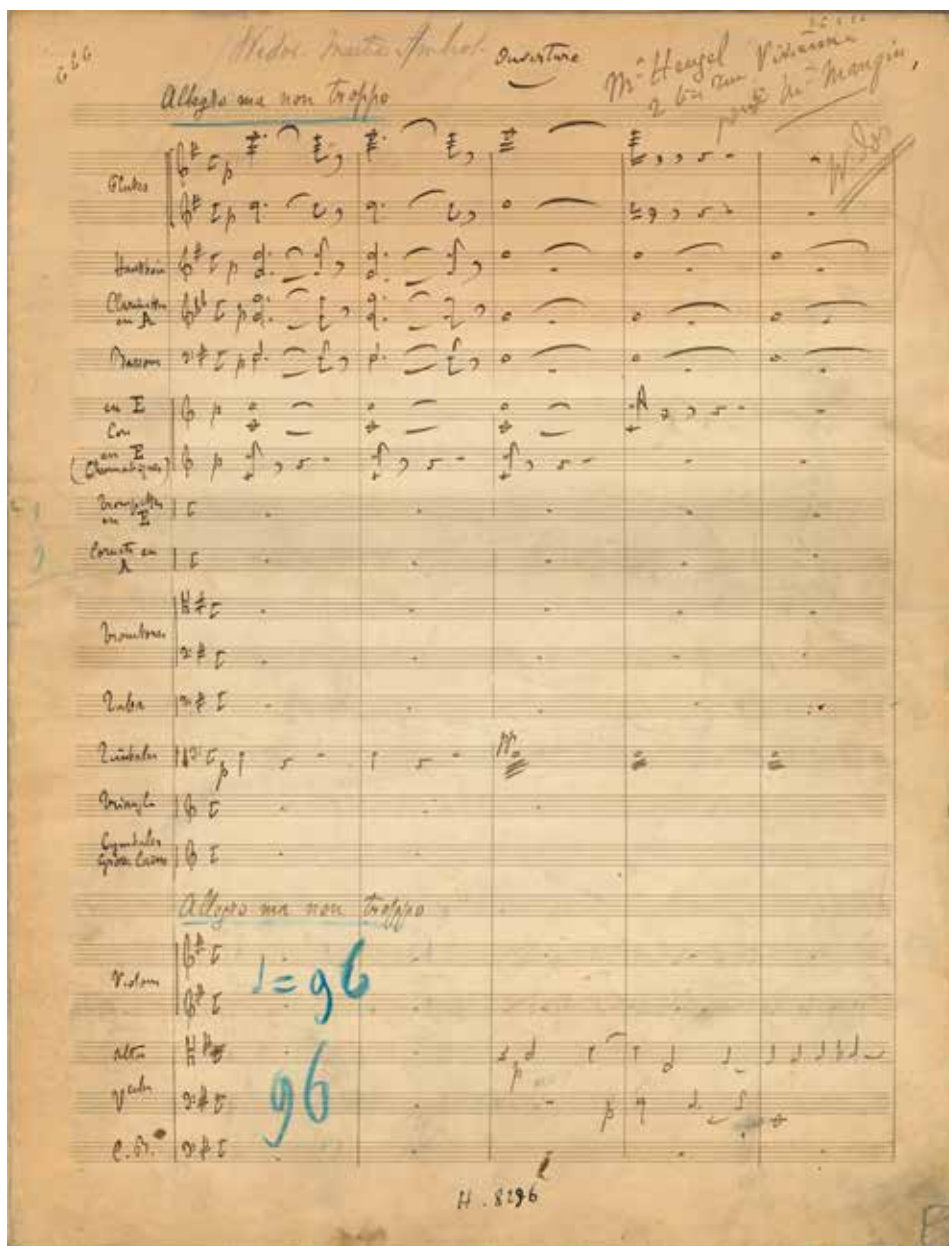 Widor Maitre Ambros
Ouverture
Mr Heugel
2 bis rue Vivienne
pour Mr Mangin,
Allegro ma non troppo
Flutes
Hautbois
Clarinettes
en A
Bassons
en E
Cors
en E
(Chromatiques)
Trompettes
en E
Cornets en
A
Trombones
Tuba
Timbales
Triangle
Cymbales
Grosse Caisse
Allegro ma non troppo
Violons
= 96
Altos
96
Vcelles
C.B.
H. 8296